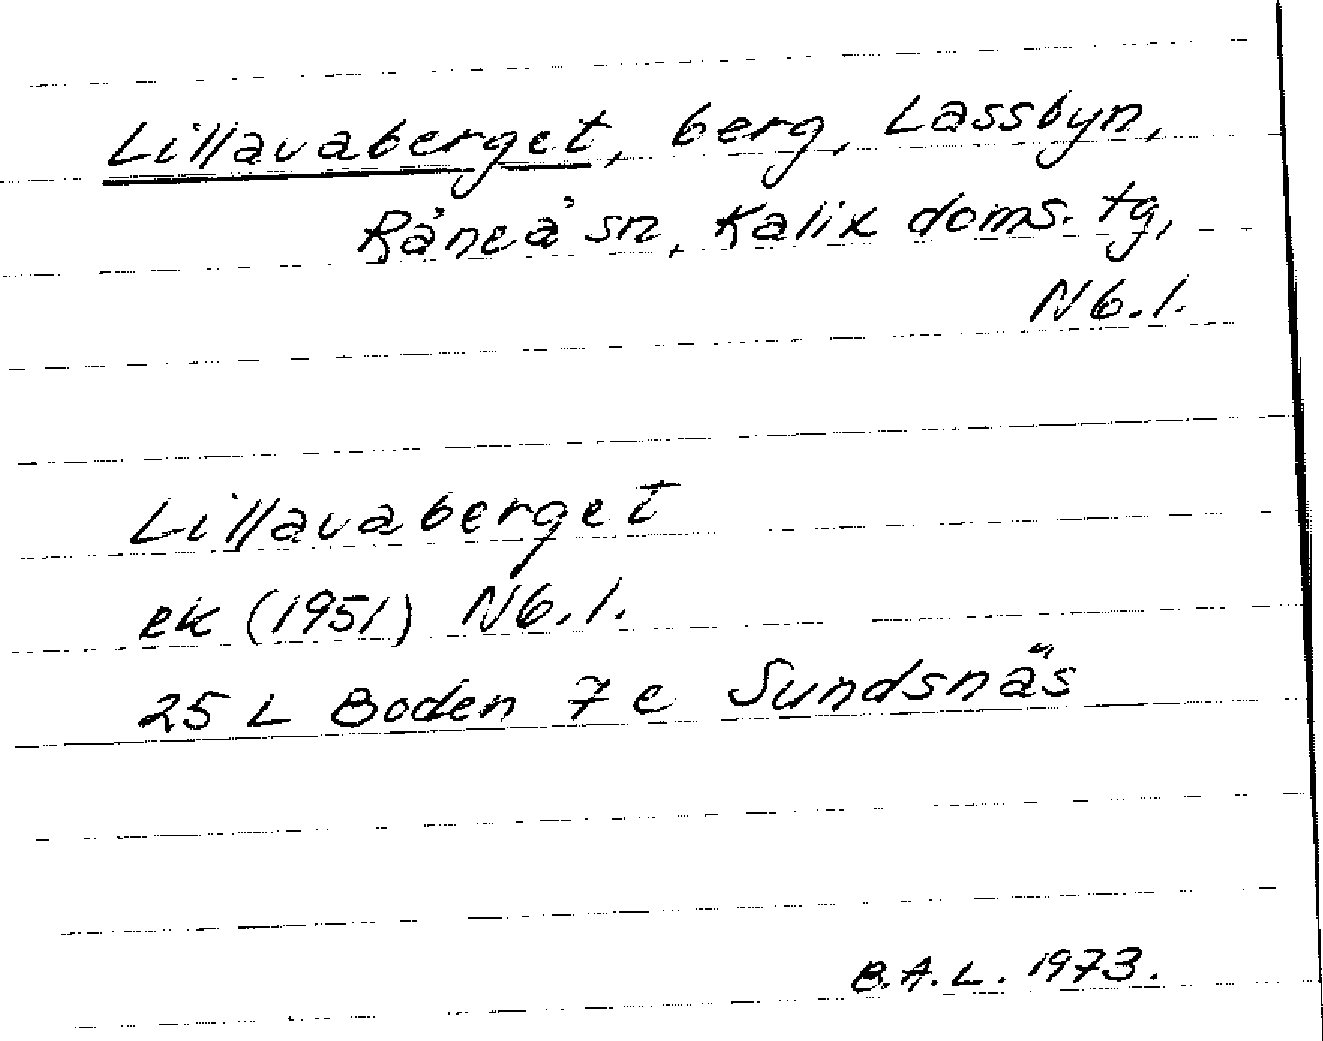 Lillavaberget, berg, Lassbyn,
Råneå sn, Kalix doms. tg,
N6.1.
Lillavaberget
ek (1951) N6.1.
25 L Boden 7 e Sundsnäs
B.A.L. 1973.